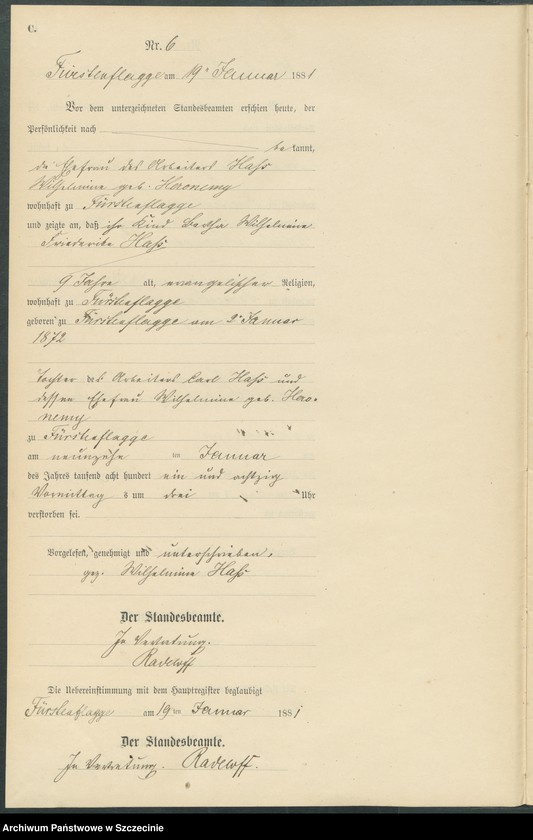 C.
Nr. 6
Fürstenflagge am 19ten Januar 1881
Vor dem unterzeichneten Standesbeamten erschien heute, der
Persönlichkeit nach
bekannt,
die Ehefrau des Arbeiters Hass
Wilhelmine geb. Heronemy
wohnhaft zu Fürstenflagge
und zeigte an, daß ihr Kind Bertha Wilhelmine
Friederike Hass
9 Jahre alt, evangelischer Religion,
wohnhaft zu Fürstenflagge
geboren zu Fürstenflagge am 2ten Januar
1872
Tochter des Arbeiters Carl Hass und
dessen Ehefrau Wilhelmine geb. Hero-
nemy
zu Fürstenflagge
am neunzehn ten Januar
des Jahres tausend acht hundert ein und achtzig
Vormittags um drei Uhr
verstorben sei.
Vorgelesen, genehmigt und unterschrieben,
gez. Wilhelmine Hass
Der Standesbeamte.
In Vertretung.
Radeloff
Die Uebereinstimmung mit dem Hauptregister beglaubigt
Fürstenflagge am 19ten Januar 1881
Der Standesbeamte.
In Vertretung. Radeloff.
Archiwum Państwowe w Szczecinie